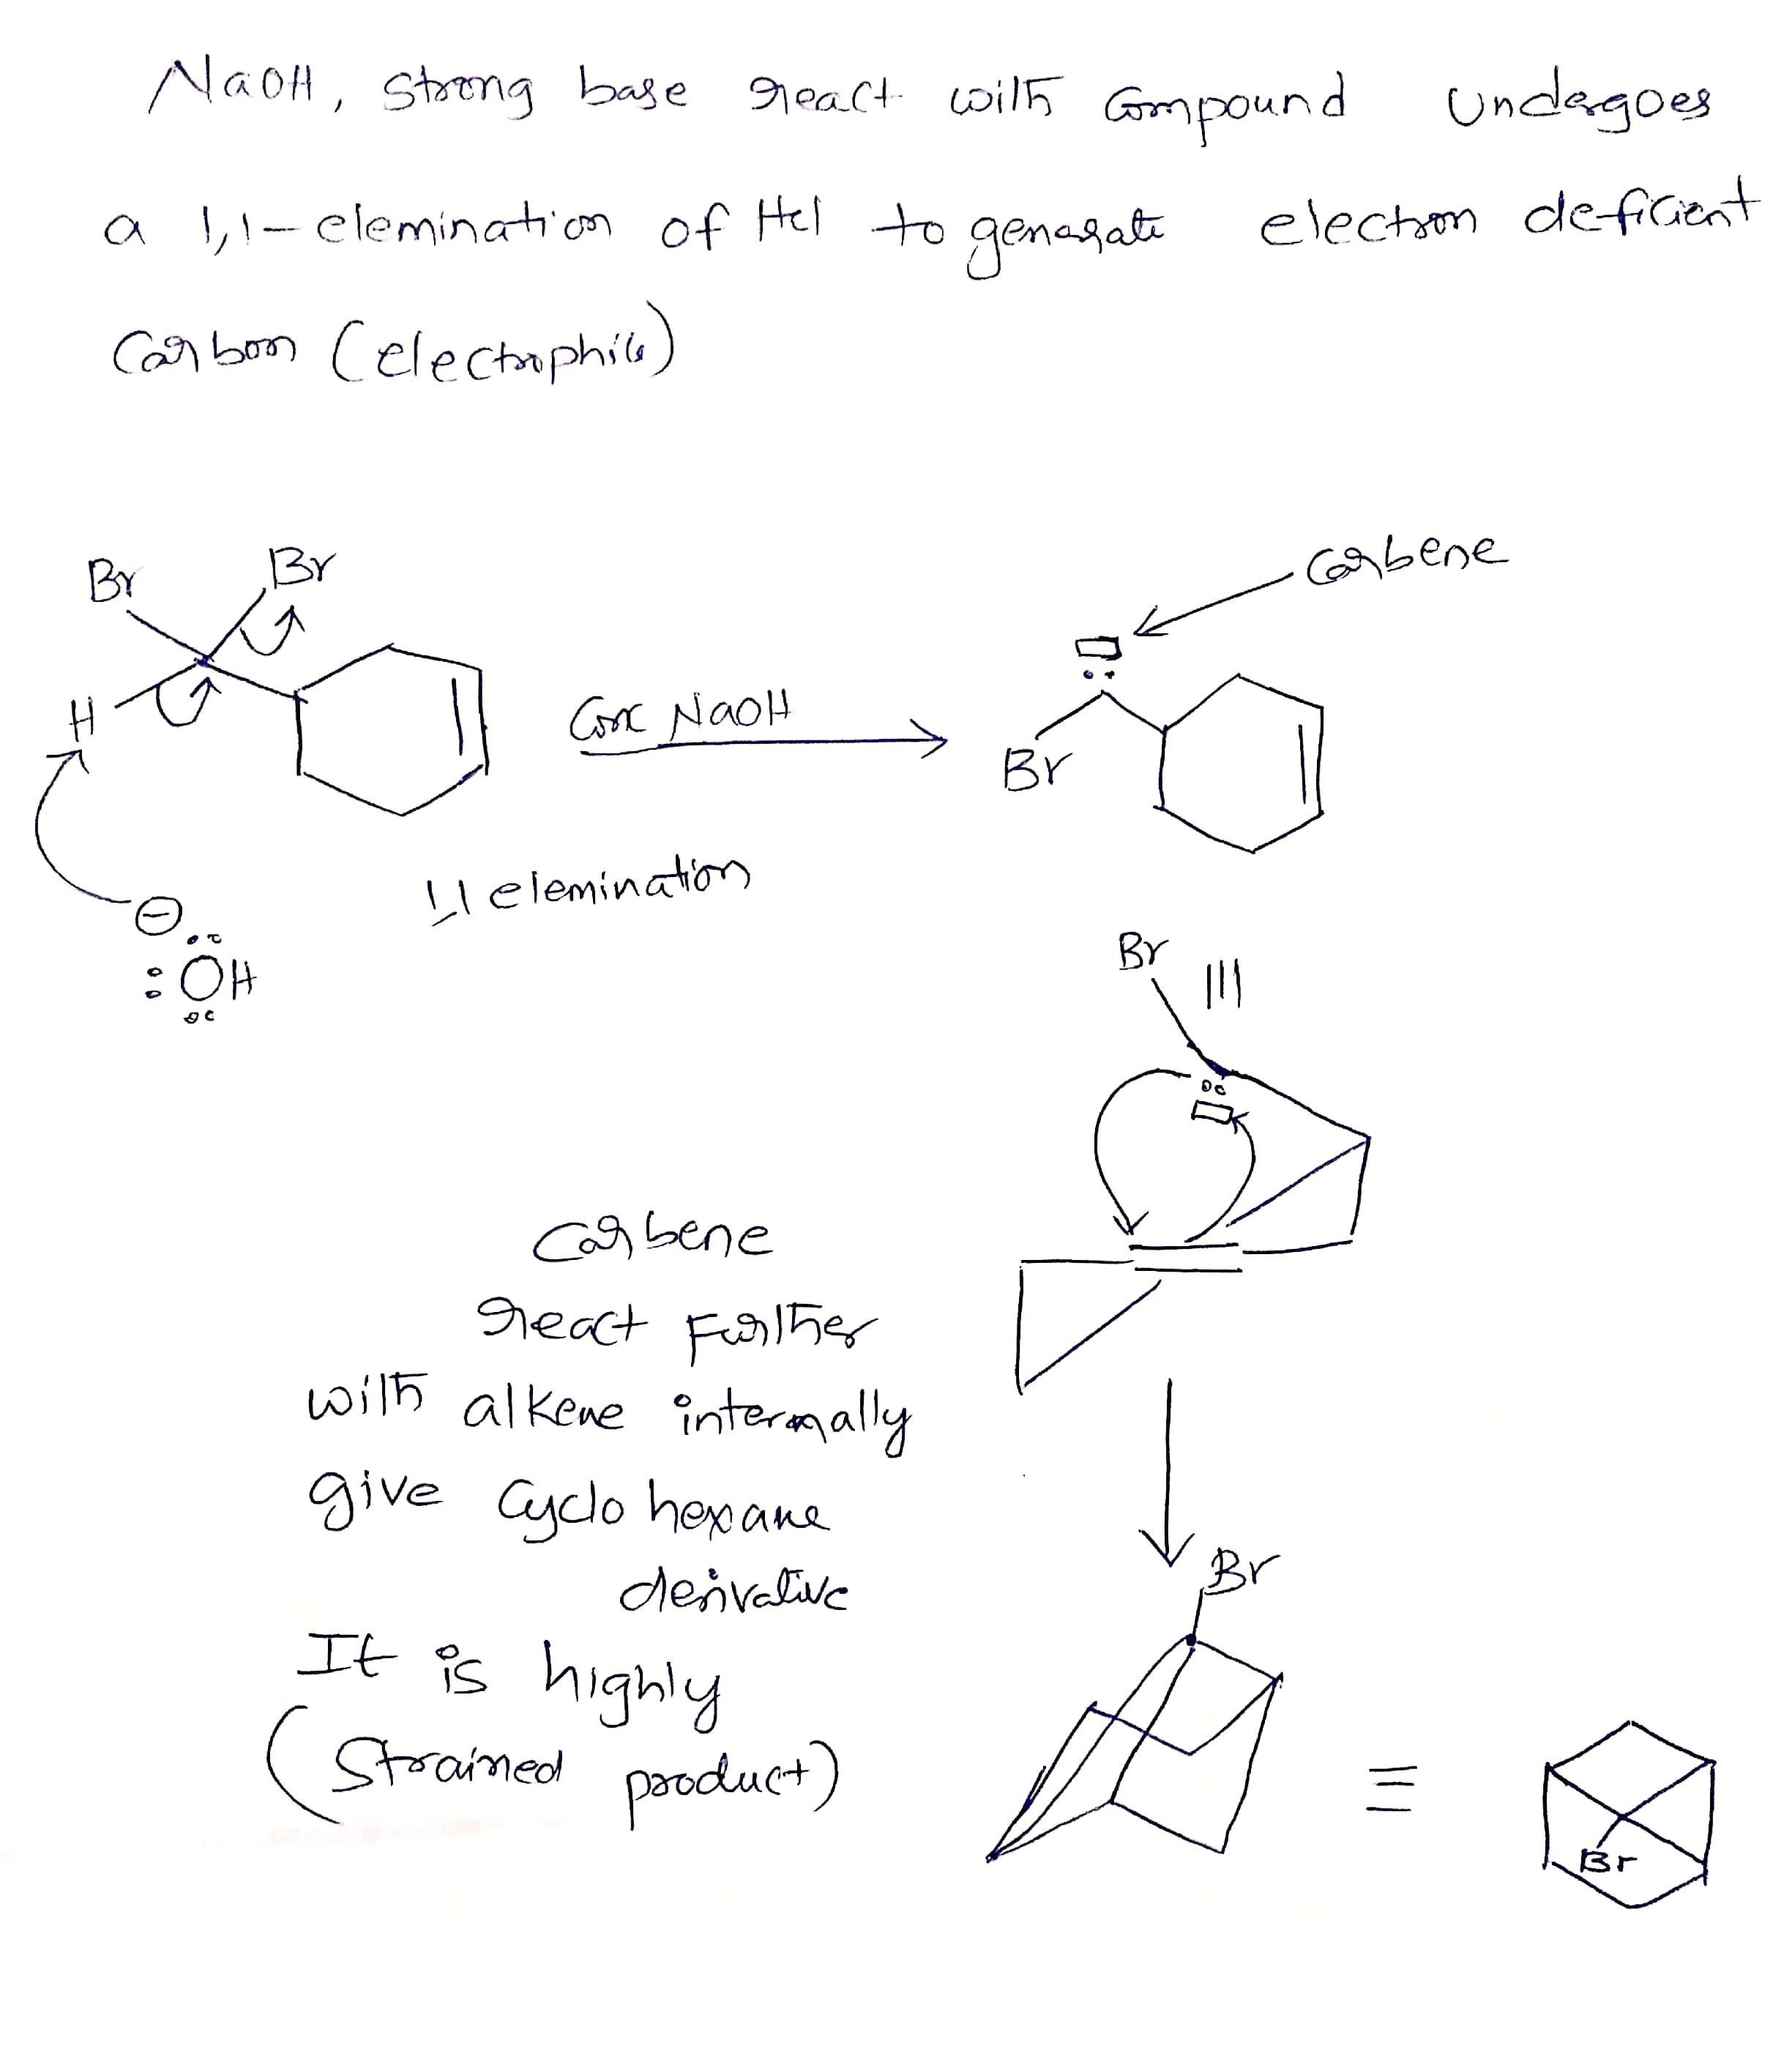 NaOH, strong base react with Compound Undergoes
a 1,1-elemination of Hcl to genarate electron deficient
Carbon (electrophile)
Br Br
H
Conc NaOH
1,1 elemination
⊖
:OH
Carbene
Br
Br
Carbene
react Further
with alkene internally
give Cyclo hexane
derivative
It is highly
(Strained product)
Br
≡
Br